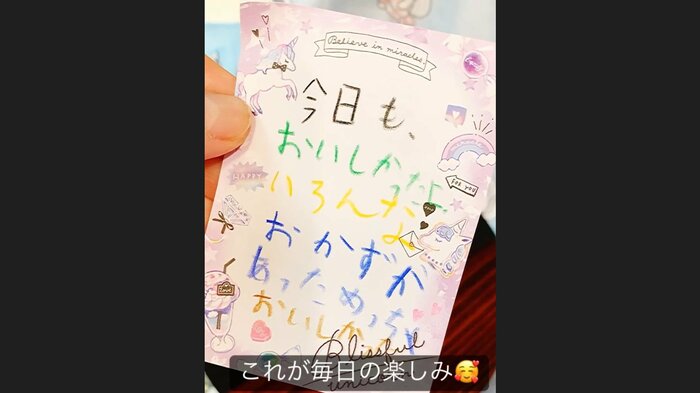 Believe in miracles.
今日も、
おいしかったよ
HAPPY
FOR YOU
いろんな
おかずが
あっためっちゃ
おいしかった
Blissful
unicorn
これが毎日の楽しみ🥰